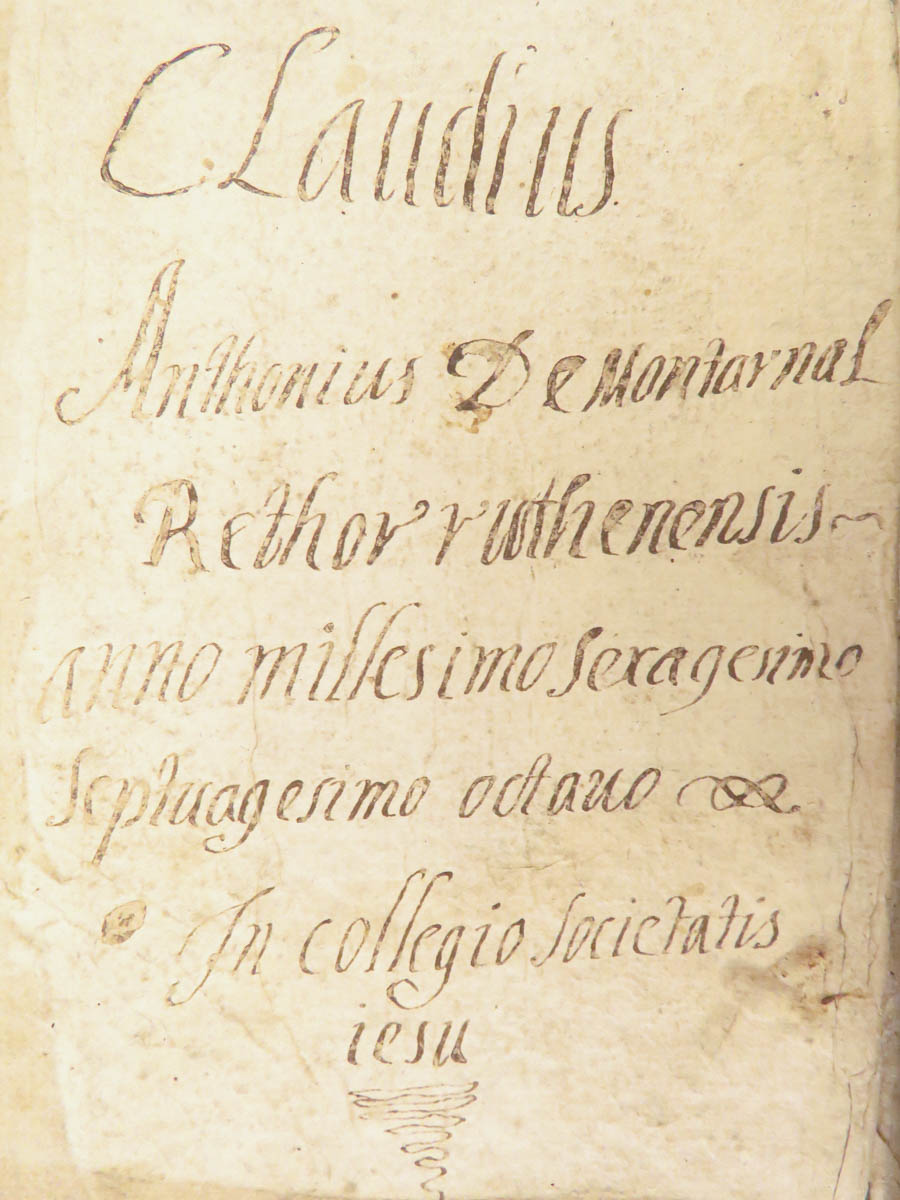 CLaudius
Anthonius De Montarnal
Rethor ruthenensis
anno millesimo sexagesimo
septuagesimo octavo
In collegio societatis
iesu